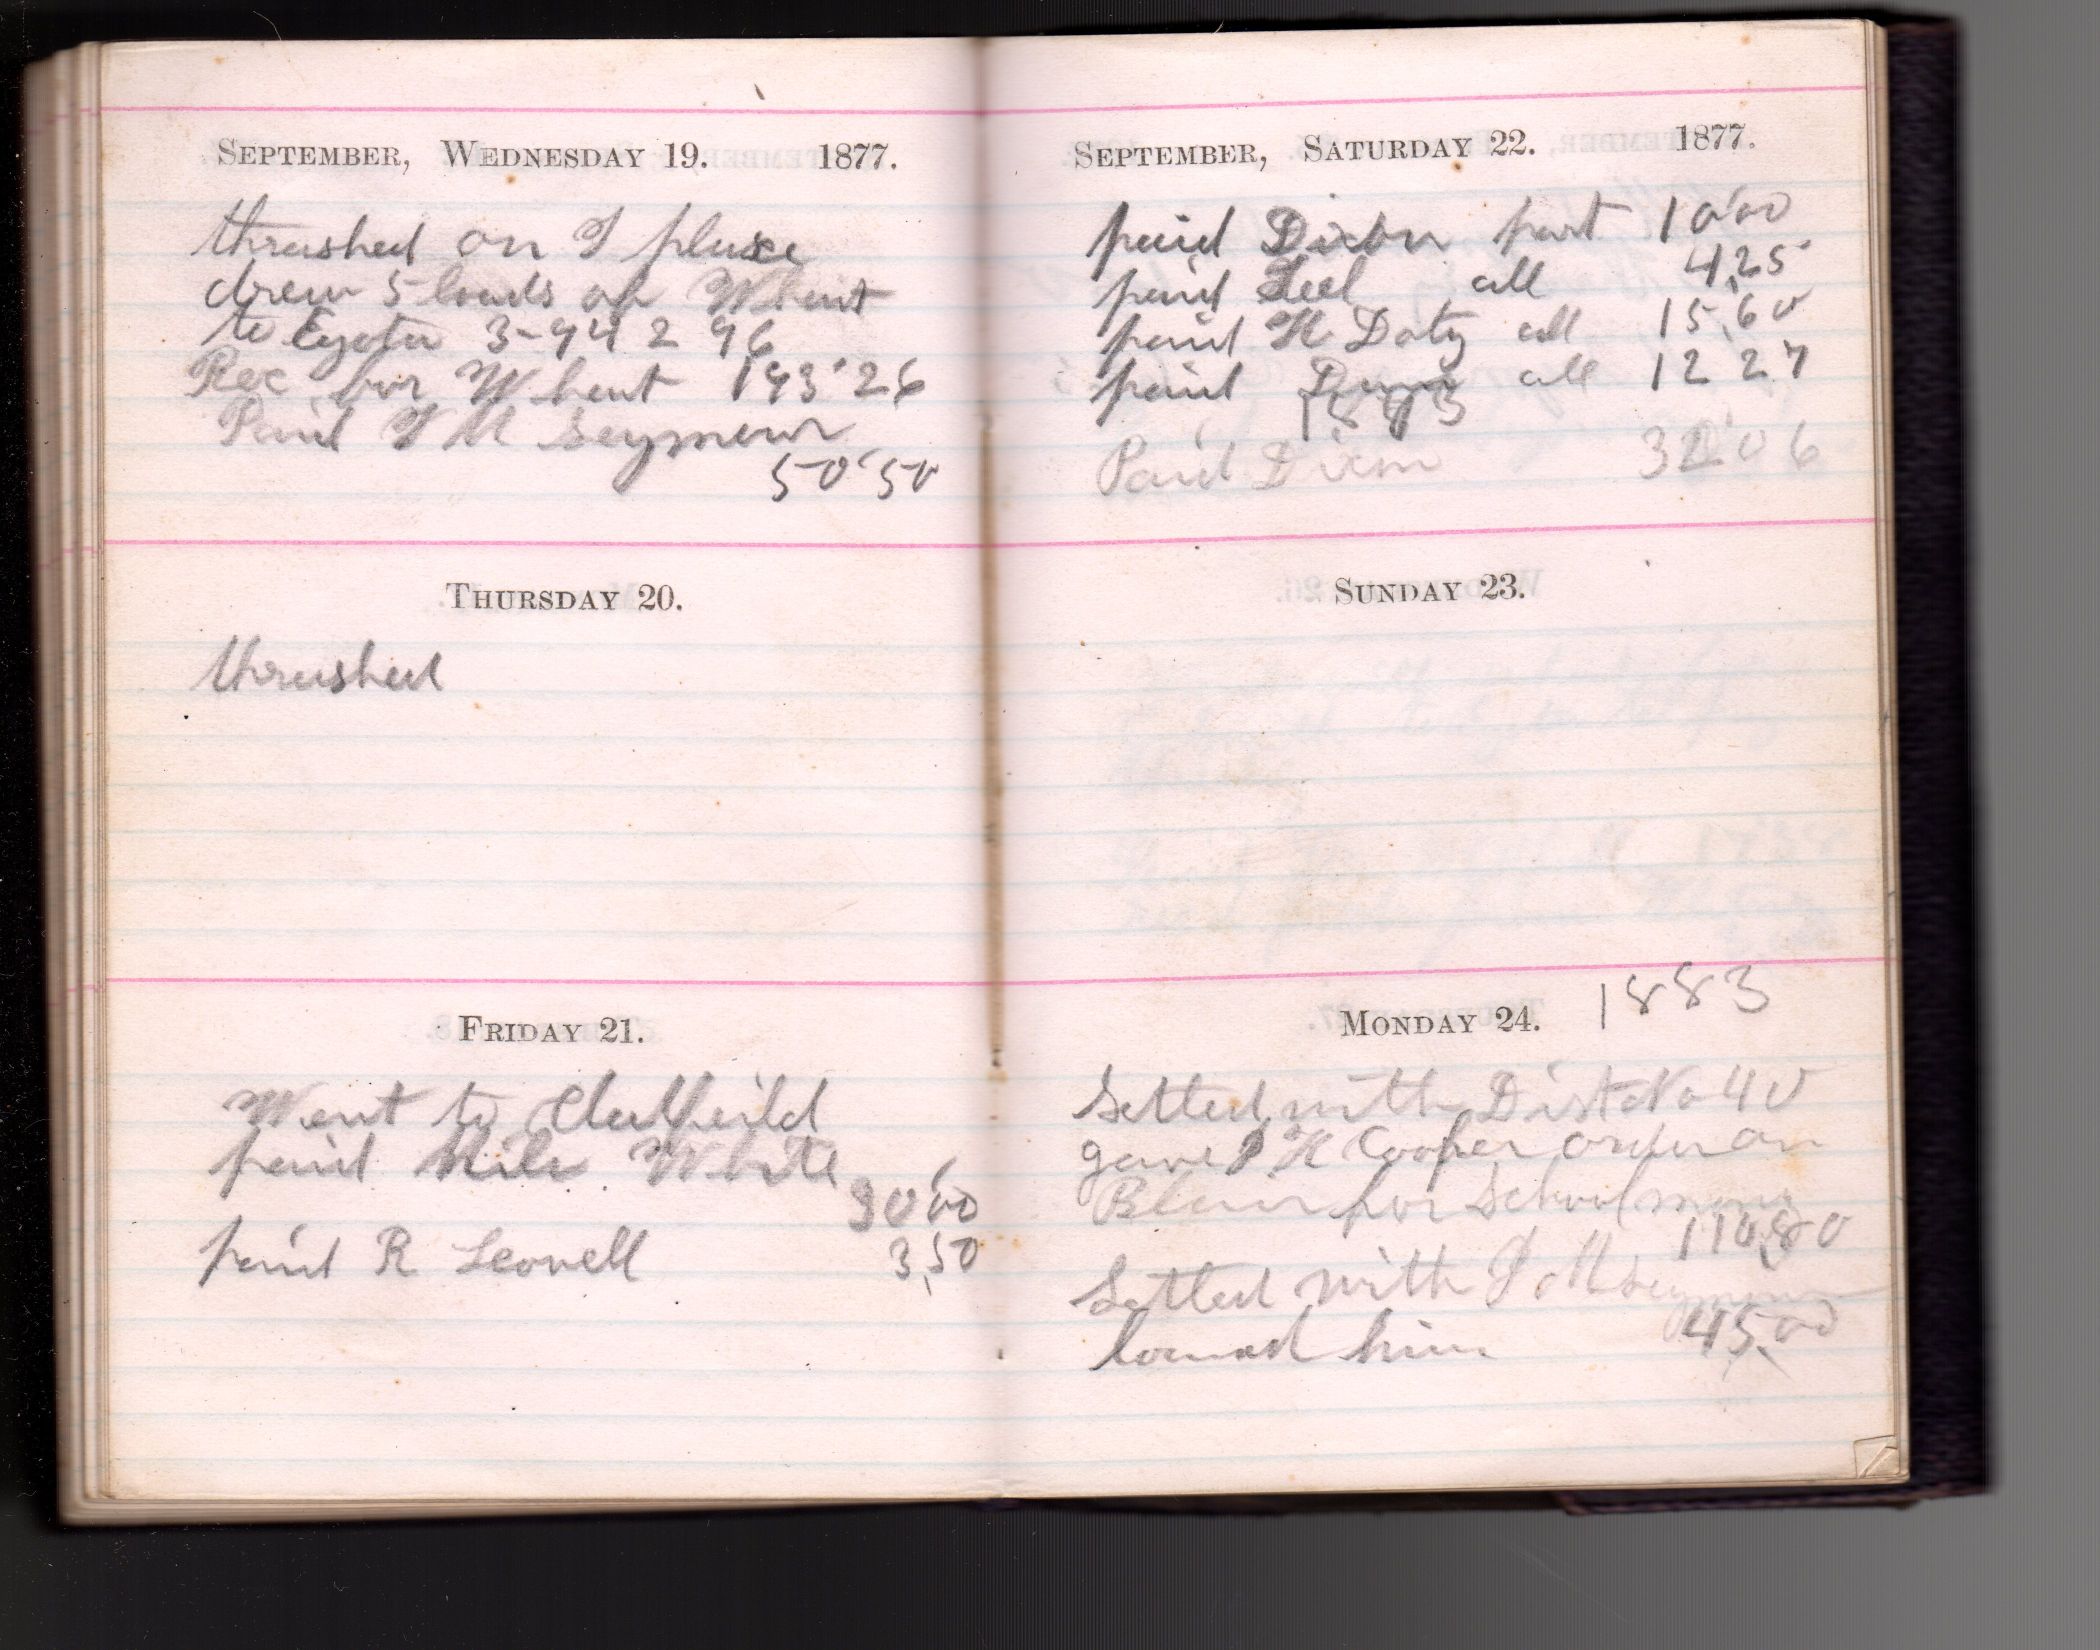 SEPTEMBER, WEDNESDAY 19. 1877.
thrashed on I place
drew 5 loads of Wheat
to Eyota 3-94 2 96
Rec for Wheat 193'26
Paid I M Seymour
50'50
THURSDAY 20.
thrashed
FRIDAY 21.
Went to Chatfeild
paid Milo White
30'00
paid R Leovell 3,50
SEPTEMBER, SATURDAY 22. 1877.
paid Dixon part 10'00
paid all 4,25
paid H Doty all 15,60
paid all 12 27
Paid Dixon
SUNDAY 23.
1883
MONDAY 24.
Settled with Dist No 40
gave P H Cooper order on
Blair for School mony
110,80
Settled with I M Seymour
loaned him 45.00